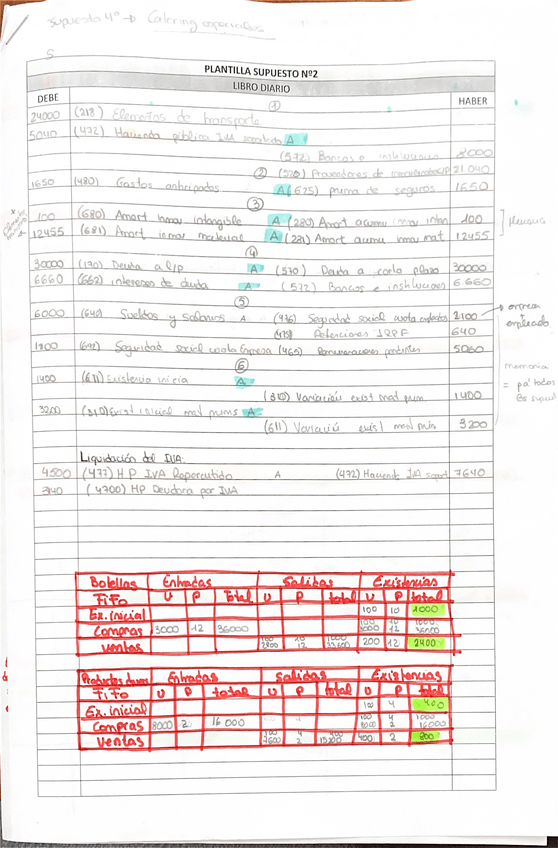 Supuesto 4º → Catering
S
PLANTILLA SUPUESTO Nº2
LIBRO DIARIO
DEBE HABER
①
24000 (218) Elementos de transporte
5040 (472) Hacienda pública IVA soportado A
(572) Bancos e instituciones 8000
② (520) Proveedores de inmovilizado 21 040
1650 (480) Gastos anticipados A (625) prima de seguros 1650
③
100 (680) Amort inmov intangible A (280) Amort acumu inmov intan 100
12455 (681) Amort inmov material A (281) Amort acumu inmov mat 12455
Memoria
④
30000 (170) Deuda a l/p A (520) Deuda a corto plazo 30000
6660 (662) intereses de deuda A (572) Bancos e instituciones 6.660
⑤
6000 (640) Sueldos y salarios A (476) Seguridad social cuota 2100 → empresa + empleado
(4751) Retenciones IRPF 640
1800 (642) Seguridad social cuota Empresa (465) Remuneraciones pendientes 5060
⑥
memoria = pa' todos los supuest
1400 (611) Existencia inicia A
(310) Variación exist mad prim 1400
3200 (310) Exist inicial mat prims A
(611) Variación exist mad prim 3200
Liquidación del IVA:
4500 (477) HP IVA Repercutido A (472) Hacienda IVA soport 7640
3140 (4700) HP Deudora por IVA
Botellas Entradas Salidas Existencias
FiFo U P Total U P total U P total
Ex. inicial 100 10 1000
Compras 3000 12 36000 100 10 1000
3000 12 36000
Ventas 100 10 1000 200 12 2400
2800 12 33600
Productos Entradas Salidas Existencias
FiFo U P total U P total U P total
Ex. inicial 100 4 400
Compras 8000 2 16 000 100 4
8000 2 16000
Ventas 100 4 400 2 800
7600 2 15200